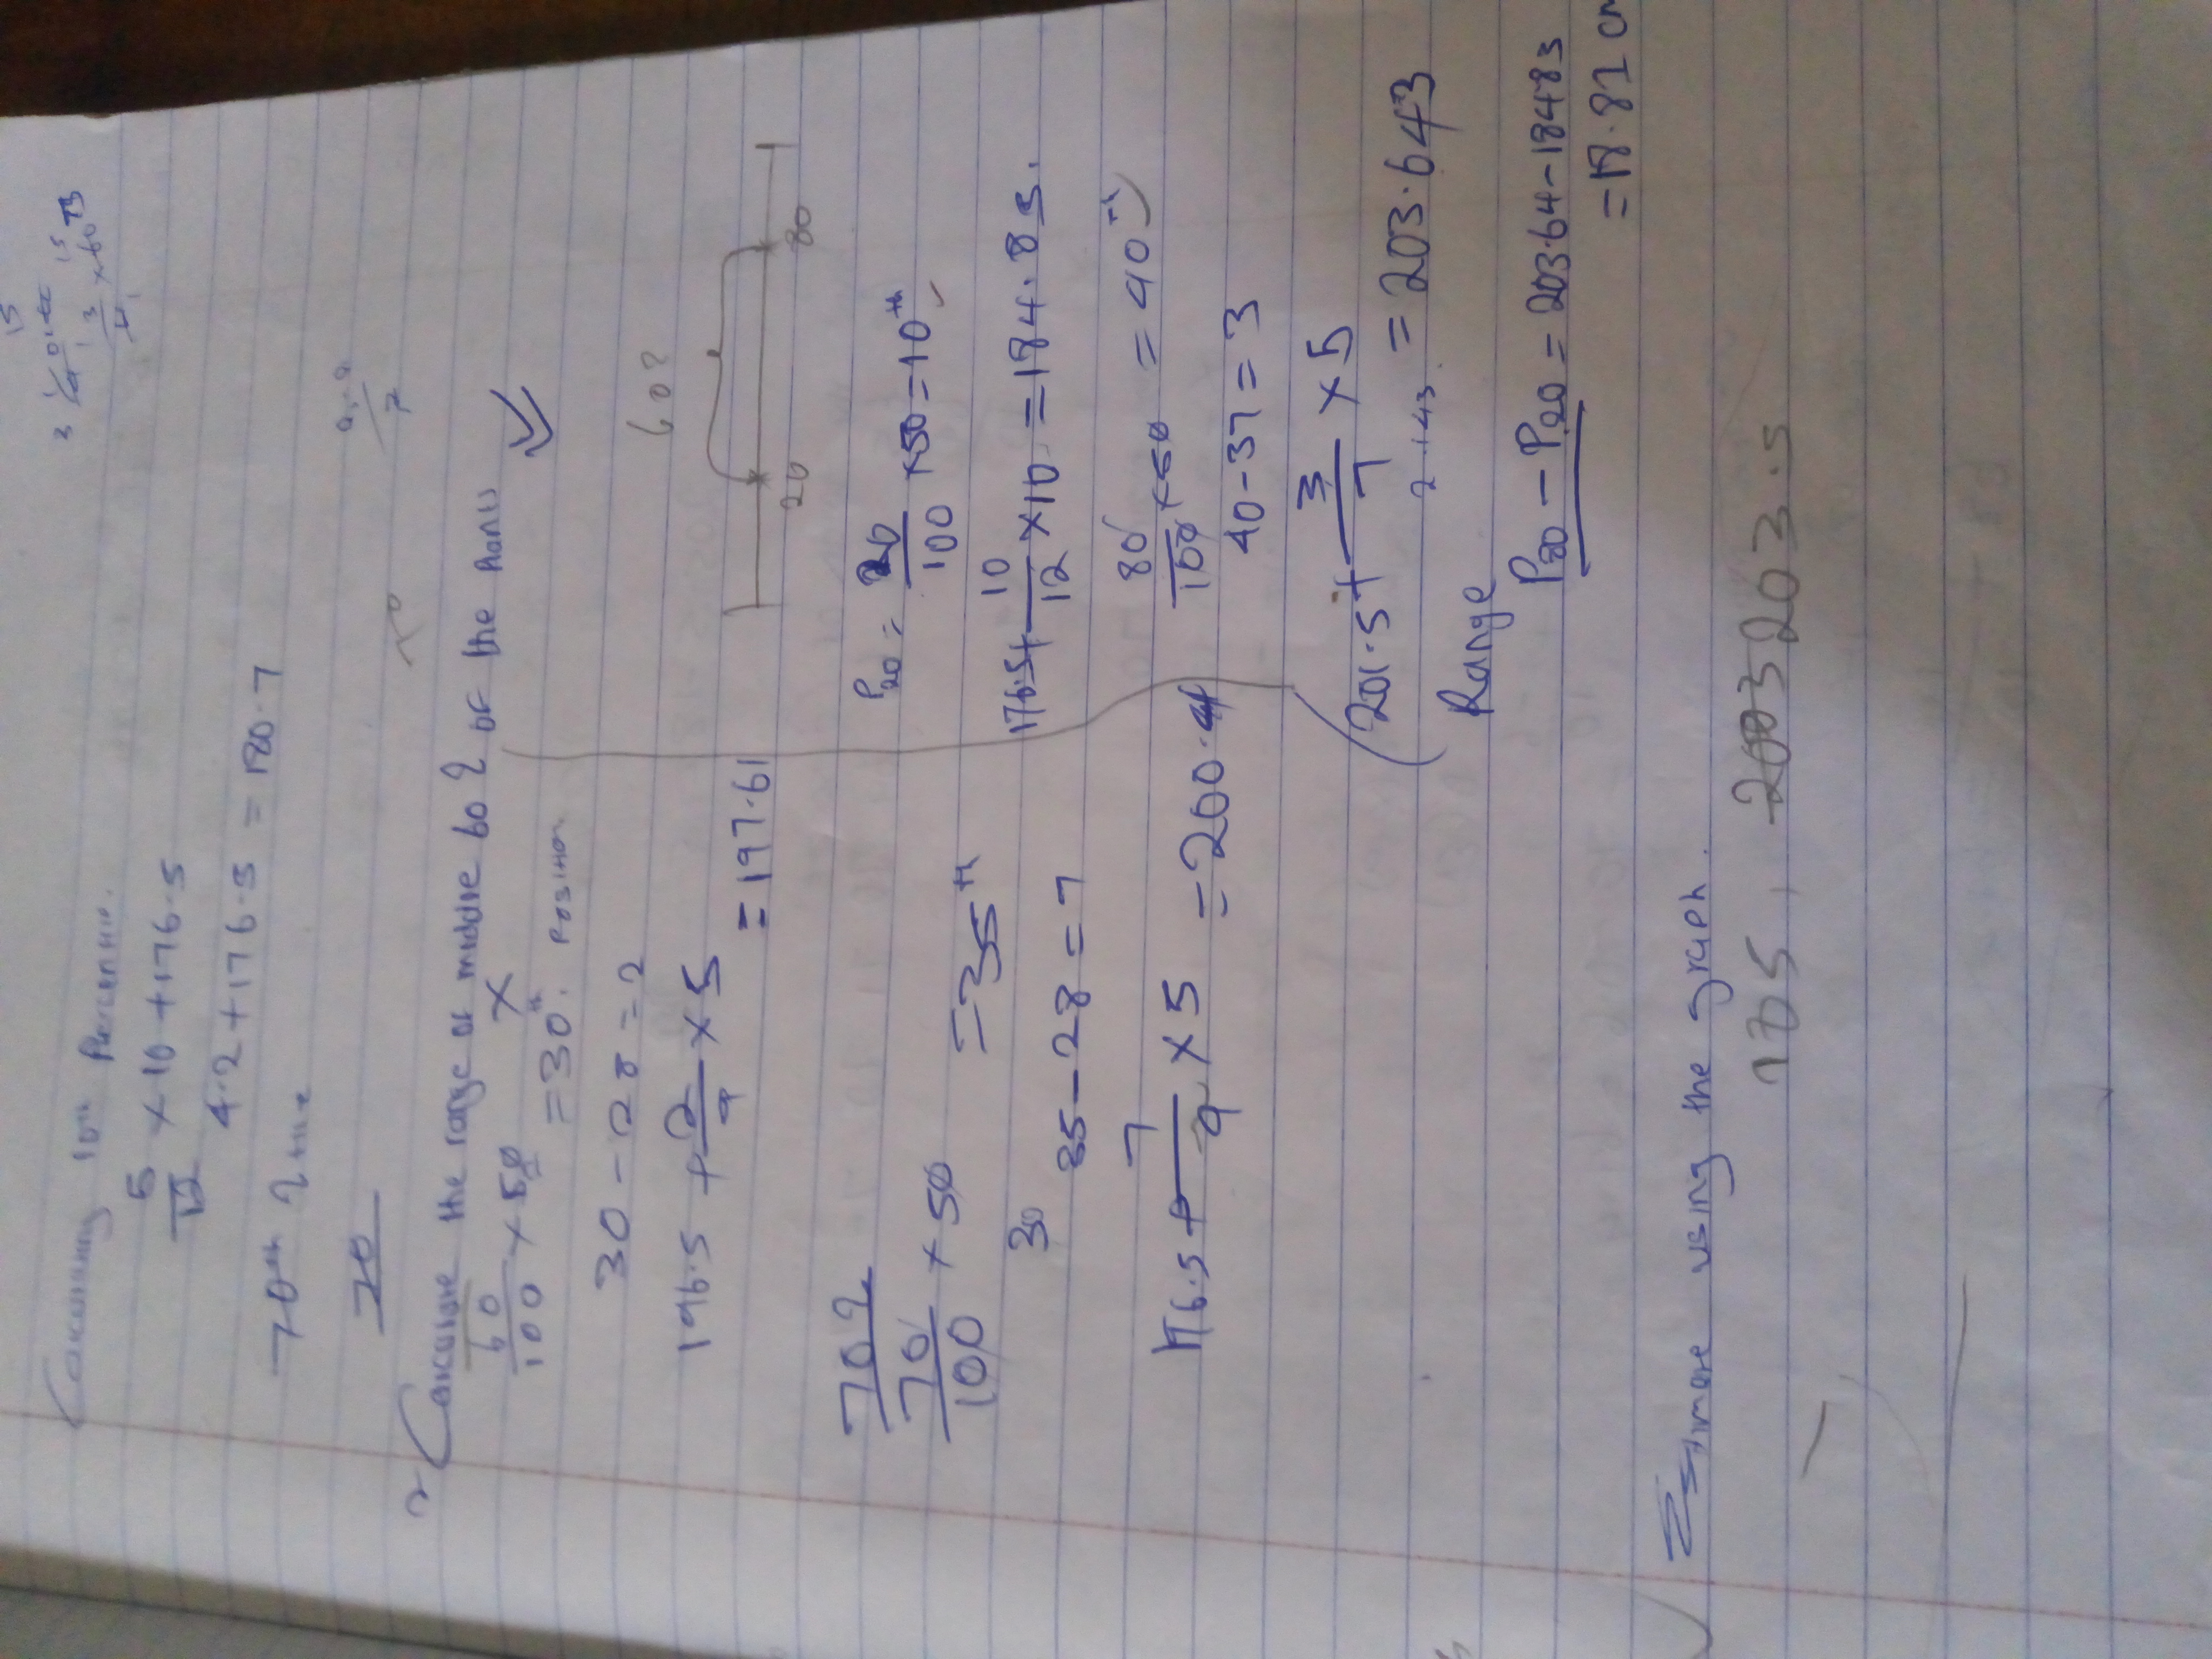 Calculating 10th Percentile.
5/12 × 10 + 176.5
4.2 + 176.5 = 180.7
70th %tile
70
Calculate the range of middle 60% of the Plants
60/100 × 50
= 30th Position
30 - 28 = 2
196.5 + 2/9 × 5
= 197.61
70%
70/100 × 50
= 35th
30
35 - 28 = 7
196.5 + 7/9 × 5 = 200.4
60%
20 80
P20 = 20/100 × 50 = 10th
176.5 + 10/12 × 10 = 184.83.
80/100 × 50 = 40th
40 - 37 = 3
201.5 + 3/7 × 5
2.143 = 203.643
Range
P80 - P20 = 203.64 - 184.83
= 18.81 cm
Estimate using the graph.
185, 2003 203.5